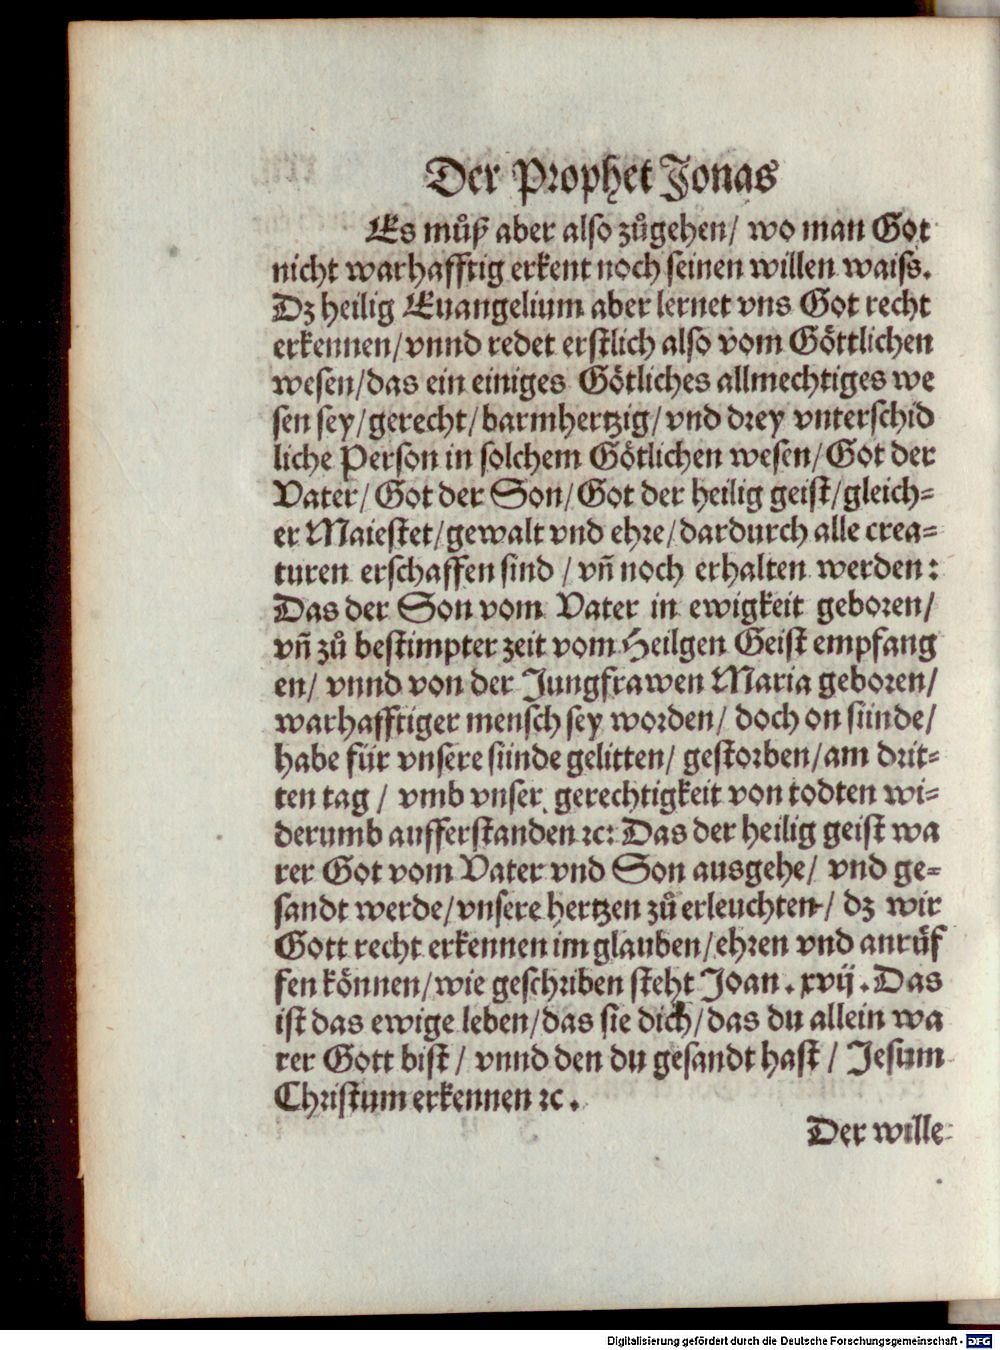 Der Prophet Jonas
Es můß aber also zůgehen/ wo man Got
nicht warhafftig erkent noch seinen willen waiss.
Dz heilig Euangelium aber lernet vns Got recht
erkennen/vnnd redet erstlich also vom Göttlichen
wesen/das ein einiges Götliches allmechtiges we
sen sey/gerecht/barmhertzig/vnd drey vnterschid
liche Person in solchem Götlichen wesen/Got der
Vater/Got der Son/Got der heilig geist/gleich=
er Maiestet/gewalt vnd ehre/dardurch alle crea=
turen erschaffen sind / vñ noch erhalten werden:
Das der Son vom Vater in ewigkeit geboren/
vñ zů bestimpter zeit vom Heilgen Geist empfang
en/ vnnd von der Jungfrawen Maria geboren/
warhafftiger mensch sey worden/ doch on sünde/
habe für vnsere sünde gelitten/ gestorben/am drit=
ten tag / vmb vnser gerechtigkeit von todten wi=
derumb aufferstanden ꝛc: Das der heilig geist wa
rer Got vom Vater vnd Son ausgehe/ vnd ge=
sandt werde/vnsere hertzen zů erleuchten/ dz wir
Gott recht erkennen im glauben/ehren vnd anrůf
fen können/wie geschriben steht Joan. xvij. Das
ist das ewige leben/das sie dich/das du allein wa
rer Gott bist/ vnnd den du gesandt hast/ Jesum
Christum erkennen ꝛc.
Der wille
Digitalisierung gefördert durch die Deutsche Forschungsgemeinschaft - DFG